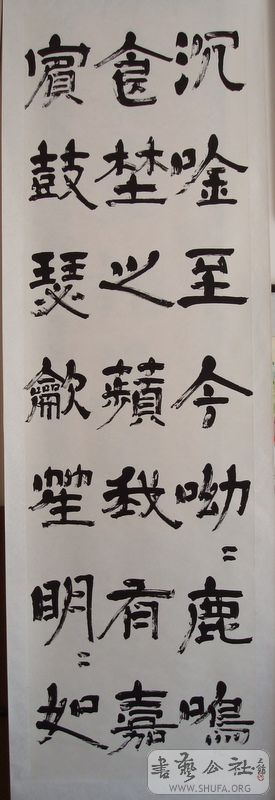 沉唫至今呦〻鹿鳴
食埜之蘋我有嘉
賓鼓瑟龡笙明〻如
書藝公社
WWW.SHUFA.ORG